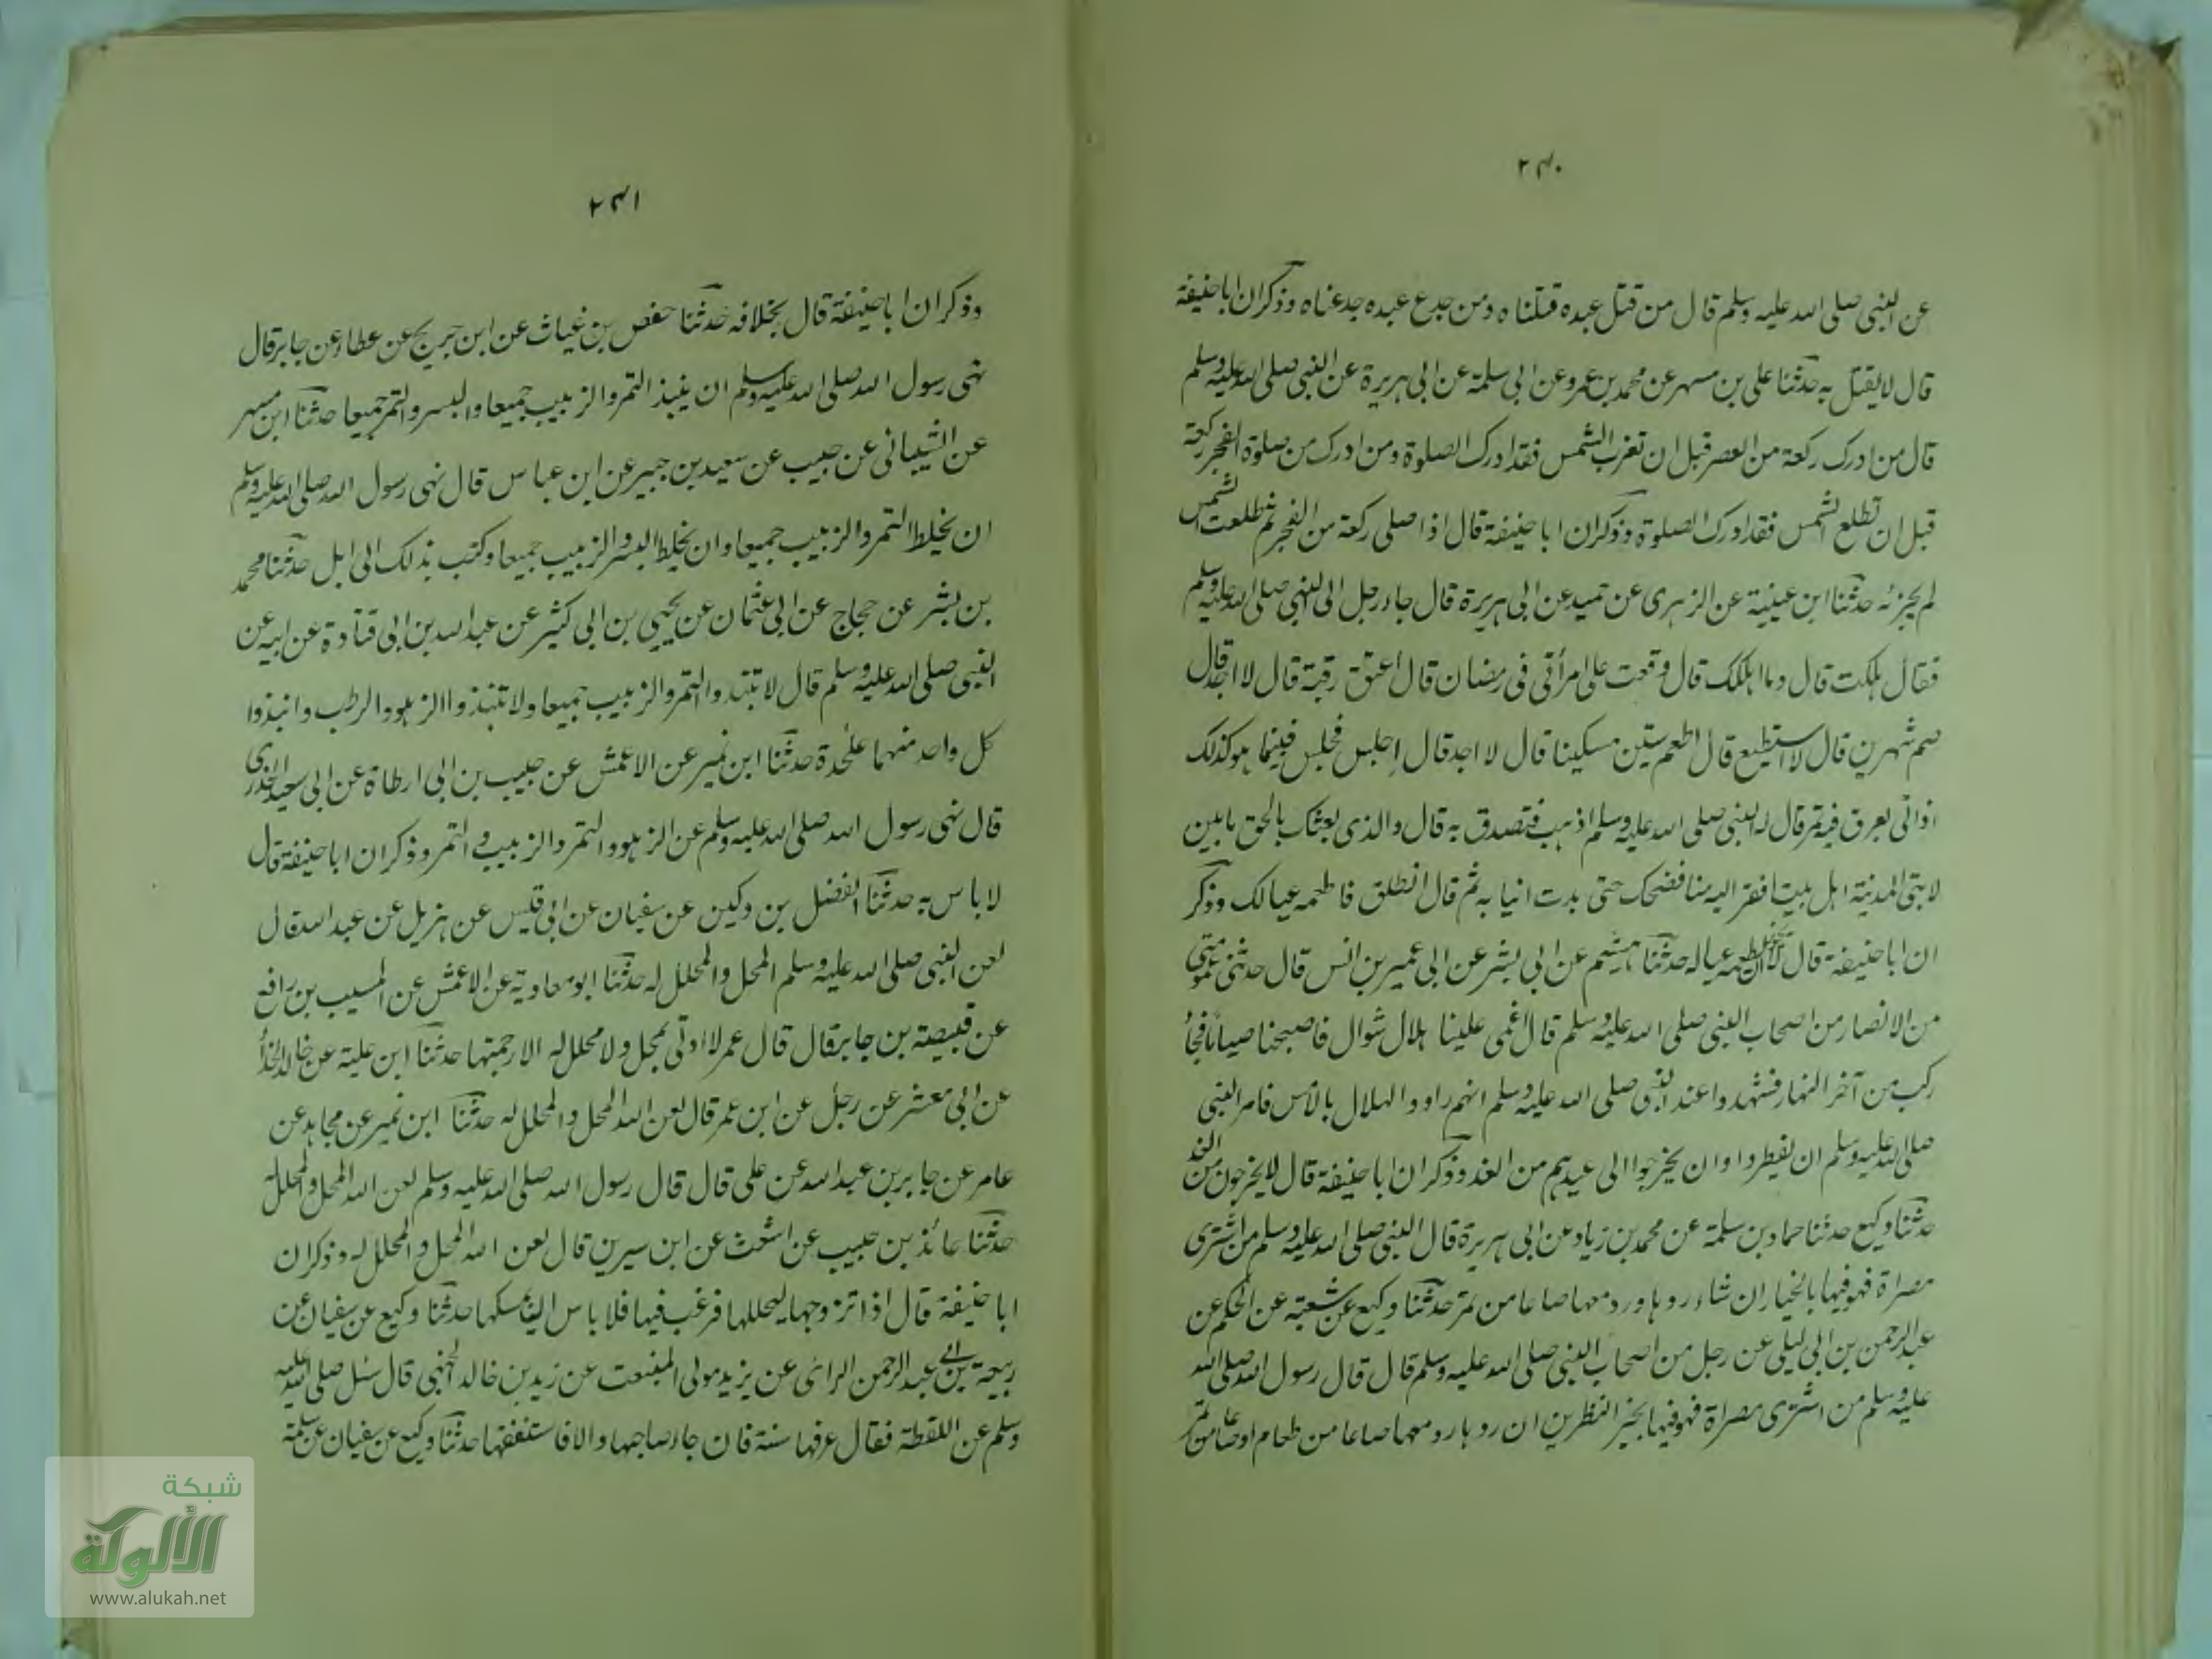 ۲۴۰
عن النبى صلى الله عليه وسلم قال من قتل عبده قتلناه ومن جدع عبده جدعناه وذكران اباحنيفة
قال لايقتل به حدثنا على بن مسهر عن محمد بن عمرو عن ابى سلمة عن ابى هريرة عن النبى صلى الله عليه وسلم
قال من ادرك ركعة من العصر قبل ان تغرب الشمس فقد ادرك الصلوة ومن ادرك من صلوة الفجر ركعة
قبل ان تطلع الشمس فقد ادرك الصلوة وذكران ابا حنيفة قال اذا صلى ركعة من الفجر ثم طلعت الشمس
لم يجزئه حدثنا ابن عيينة عن الزهرى عن حميد عن ابى هريرة قال جاء رجل الى النبى صلى الله عليه وسلم
فقال هلكت قال وما اهلكك قال وقعت على امرأتى فى رمضان قال أعتق رقبة قال لا اجد قال
صم شهرين قال لا استطيع قال اطعم ستين مسكينا قال لا اجد قال اجلس فجلس فبينما هو كذلك
اذ اتى بعرق فيه تمر قال له النبى صلى الله عليه وسلم اذهب فتصدق به قال والذى بعثك بالحق ما بين
لابتى المدينة اهل بيت افقر اليه منا فضحك حتى بدت انيابه ثم قال انطلق فاطعمه عيالك وذكر
ان ابا حنيفة قال لا يجوز ان يطعمه عياله حدثنا هشيم عن ابى بشر عن ابى عمير بن انس قال حدثنى عمومتى
من الانصار من اصحاب النبى صلى الله عليه وسلم قال اغمى علينا هلال شوال فاصبحنا صياما فجاء
ركب من آخر النهار فشهدوا عند النبى صلى الله عليه وسلم انهم راووا الهلال بالامس فامر النبى
صلى الله عليه وسلم ان يفطروا وان يخرجوا الى عيدهم من الغد وذكران ابا حنيفة قال لا يخرجون من الغد
حدثنا وكيع حدثنا حماد بن سلمة عن محمد بن زياد عن ابى هريرة قال النبى صلى الله عليه وسلم من اشترى
مصراة فهو فيها بالخيار ان شاء ردها ورد معها صاعا من تمر حدثنا وكيع عن شعبة عن الحكم عن
عبد الرحمن بن ابى ليلى عن رجل من اصحاب النبى صلى الله عليه وسلم قال قال رسول الله صلى الله
عليه وسلم من اشترى مصراة فهو فيها بخير النظرين ان ردها رد معها صاعا من طعام او صاعا من تمر
۲۴۱
وذكران ابا حنيفة قال بخلافه حدثنا حفص بن غياث عن ابن جريج عن عطاء عن جابر قال
نهى رسول الله صلى الله عليه وسلم ان ينبذ التمر والزبيب جميعا والبسر والتمر جميعا حدثنا ابن مسهر
عن الشيبانى عن حبيب عن سعيد بن جبير عن ابن عباس قال نهى رسول الله صلى الله عليه وسلم
ان يخلط التمر والزبيب جميعا وان يخلط البسر والزبيب جميعا وكتب بذلك الى اهل حدثنا محمد
بن بشر عن حجاج عن ابى عثمان عن يحيى بن ابى كثير عن عبد الله بن ابى قتادة عن ابيه عن
النبى صلى الله عليه وسلم قال لا تنبذوا التمر والزبيب جميعا ولا تنبذوا الزهو والرطب وانبذوا
كل واحد منهما علىحدة حدثنا ابن نمير عن الاعمش عن حبيب بن ابى ارطاة عن ابى سعيد الخدرى
قال نهى رسول الله صلى الله عليه وسلم عن الزهو والتمر والزبيب والتمر وذكران ابا حنيفة قال
لا باس به حدثنا الفضل بن دكين عن سفيان عن ابى قيس عن هزيل عن عبد الله قال
لعن النبى صلى الله عليه وسلم المحل والمحلل له حدثنا ابو معاوية عن الاعمش عن المسيب بن رافع
عن قبيصة بن جابر قال قال عمر لا اوتى بمحل ولا محلل له الا رجمتها حدثنا ابن علية عن خالد الحذاء
عن ابى معشر عن رجل عن ابن عمر قال لعن الله المحل والمحلل له حدثنا ابن نمير عن مجاهد عن
عامر عن جابر بن عبد الله عن على قال قال رسول الله صلى الله عليه وسلم لعن الله المحل والمحلل له
حدثنا عائذ بن حبيب عن اشعث عن ابن سيرين قال لعن الله المحل والمحلل له وذكران
ابا حنيفة قال اذا تزوجها ليحللها فرغب فيها فلا باس ان يمسكها حدثنا وكيع عن سفيان عن
ربيعة بن ابى عبد الرحمن الرائى عن يزيد مولى المنبعث عن زيد بن خالد الجهنى قال سئل صلى الله عليه
وسلم عن اللقطة فقال عرفها سنة فان جاء صاحبها والا فاستنفقها حدثنا وكيع عن سفيان عن سلمة
شبكة
الألوكة
www.alukah.net